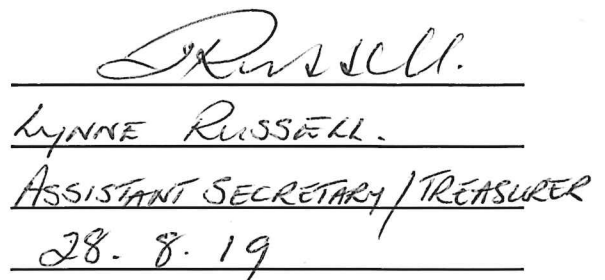 LRussell.
LYNNE RUSSELL.
ASSISTANT SECRETARY / TREASURER
28. 8. 19